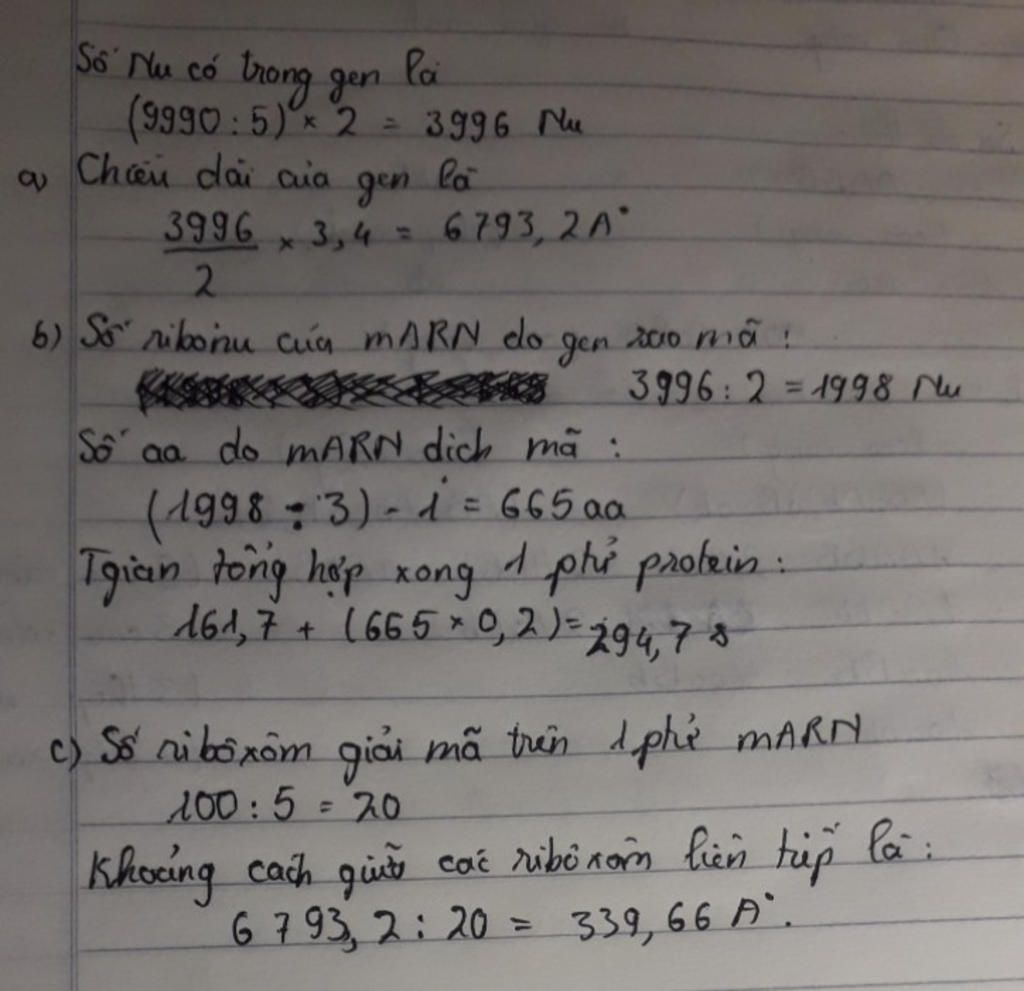 Số Nu có trong gen là
(9990 : 5) × 2 = 3996 Nu
a) Chiều dài của gen là
3996/2 × 3,4 = 6793,2 A°
b) Số ribonu của mARN do gen sao mã :
3996 : 2 = 1998 Nu
Số aa do mARN dịch mã :
(1998 ÷ 3) - 1 = 665 aa
Tgian tổng hợp xong 1 ptử protein :
161,7 + (665 × 0,2) = 294,7 s
c) Số ribôxôm giải mã trên 1 ptử mARN
100 : 5 = 20
Khoảng cách giữa các ribôxôm liên tiếp là :
6793,2 : 20 = 339,66 A°.